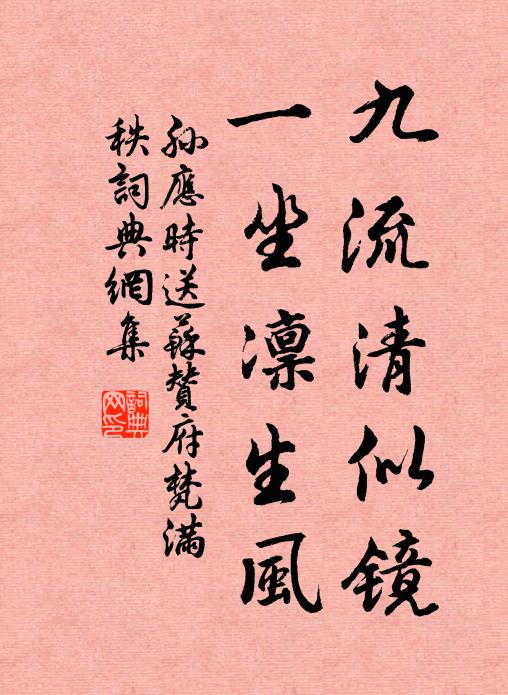 九流清似镜
一坐凛生風
孙應時送蘇贊府梵滿
秩詞典網集
詞典网印